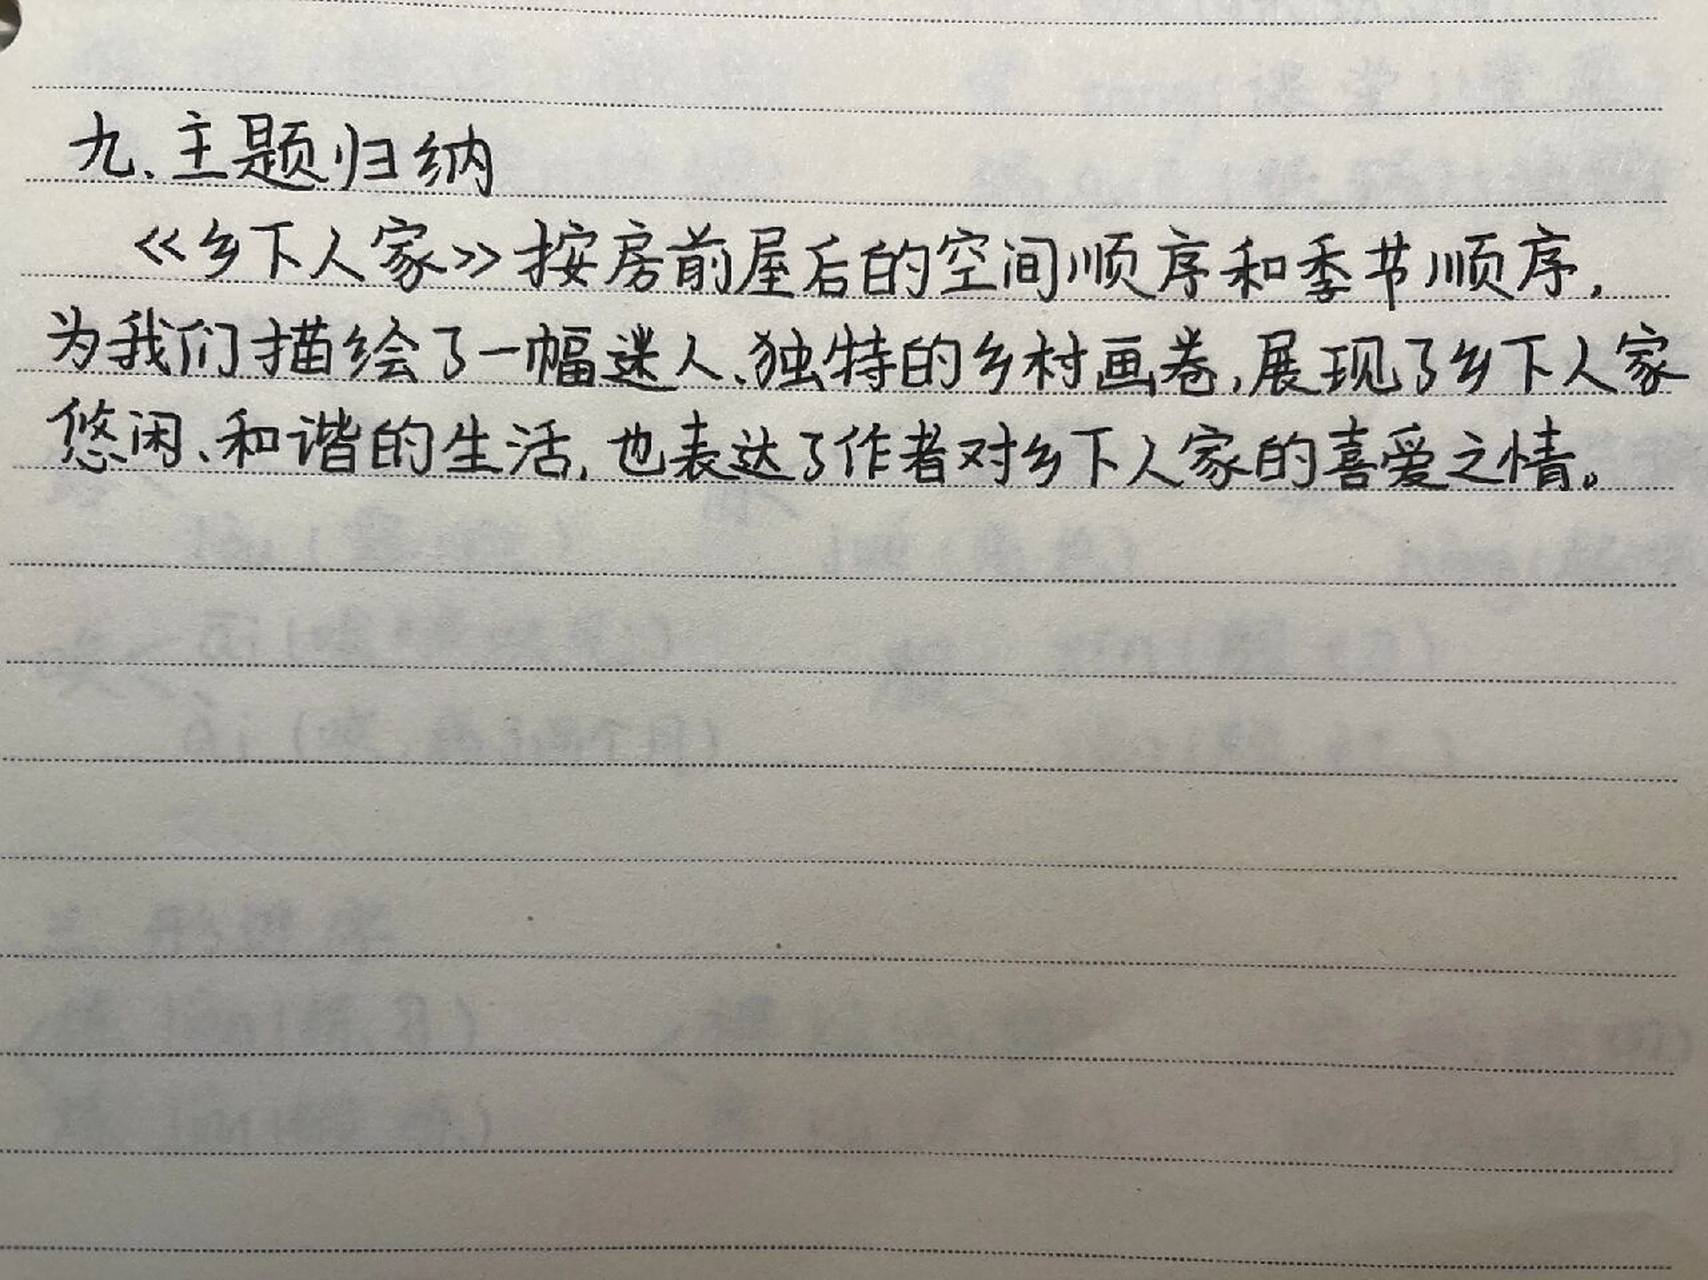 九、主题归纳
《乡下人家》按房前屋后的空间顺序和季节顺序,
为我们描绘了一幅迷人、独特的乡村画卷,展现了乡下人家
悠闲、和谐的生活,也表达了作者对乡下人家的喜爱之情。